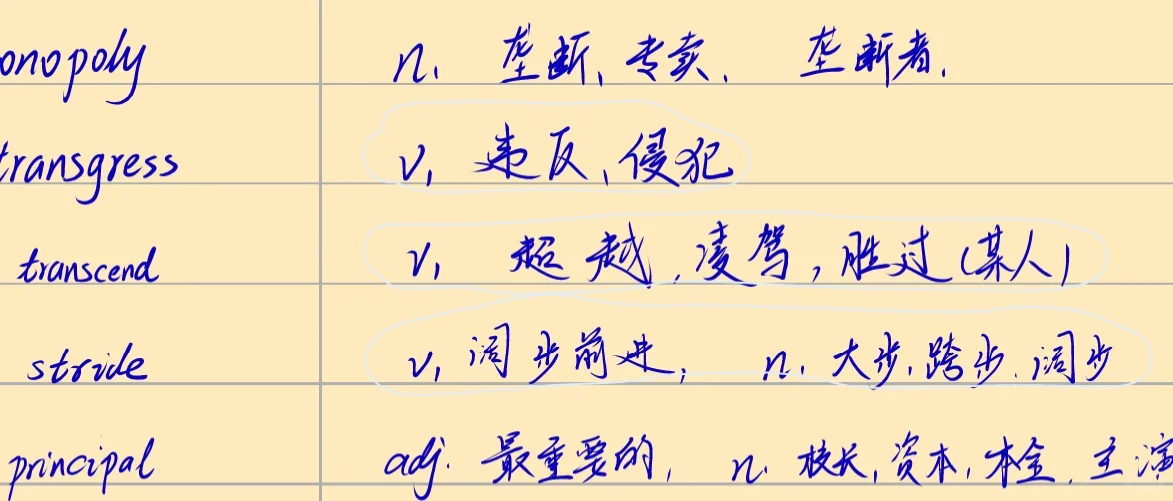 onopoly n. 垄断、专卖. 垄断者.
transgress v, 违反、侵犯
transcend v, 超越,凌驾,胜过(某人)
stride v, 阔步前进, n. 大步,跨步.阔步
principal adj. 最重要的, n. 校长,资本,本金.主演